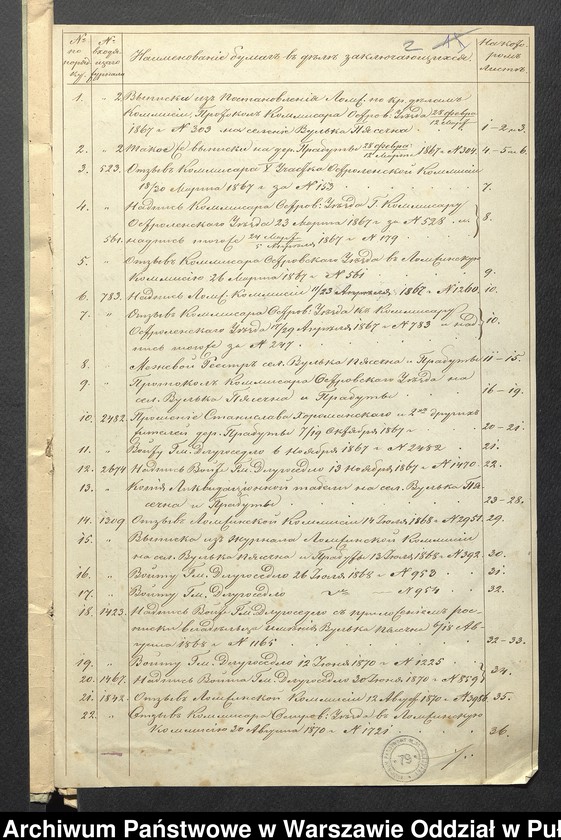 № по порядку. № входящего журнала Наименованіе бумагъ въ дѣлѣ заключающихся. На которомъ листѣ
2
1. " 2 Выписки изъ Постановленія Ломж. по кр. дѣламъ
Коммисіи, Протоколъ Коммисара Остров. Уѣзда 28 февр./12 Марта
1867 г. № 303 на селенія Вулька Пясечна. 1-2 и 3.
2. " 2 Такое же выписки на дер. Прабуты 28 февраля/12 Марта 1867 г. № 304. 4-5 и 6.
3. 523. Отзывъ Коммисара V Участка Остроленской Коммисіи
18/30 Марта 1867 г. за № 153 7.
4. " Надпись Коммисара Остров. Уѣзда Г. Коммисару
Остроленскаго Уѣзда 23 Марта 1867 г. за № 528. и 8.
561. надпись тогоже 24 Марта/5 Апрѣля 1867 г. № 179.
5. " Отзывъ Коммисара Островскаго Уѣзда въ Ломжинскую
Коммисію 26 Марта 1867 г. № 561 9.
6. 783. Надпись Ломж. Коммисіи 11/23 Апрѣля 1867 г. № 1260. 10.
7. " Отзывъ Коммисара Остров: Уѣзда къ Коммисару
Остроленскаго Уѣзда 17/29 Апрѣля 1867 г. № 783 и над- 10.
пись тогоже за № 247.
8. " Межевой Реестръ сел. Вулька Пясечна и Прабуты 11-15.
9. " Протоколъ Коммисара Островскаго Уѣзда на
сел. Вулька Пясечна и Прабуты 16-19.
10. 2482. Прошеніе Станислава Хороменскаго и 2хъ другихъ
жителей дер. Прабуты 7/19 Октября 1867 г. 20-21.
11. " Войту Гм. Длугоседло 6 Ноября 1867 г. № 2482 21.
12. 2674 Надпись Войт. Гм. Длугоседло 13 Ноября 1867 г. № 1470. 22.
13. " Копія Ликвидаціонной табели на сел. Вулька Пя-
сечна и Прабуты 23-28.
14. 1309 Отзывъ Ломжинской Коммисіи 14 Іюля 1868 г. № 2951. 29.
15. " Выписка изъ журнала Ломжинской Коммисіи
на сел. Вулька Пясечна и Прабуты 13 Іюля 1868 г. № 392. 30.
16. " Войту Гм. Длугоседло 26 Іюля 1868 г. № 953 31.
17. " Войту Гм. Длугоседло № 954 32.
18. 1423. Надпись Войт. Гм. Длугоседло съ приложеніемъ рос-
писки владѣльца имѣнія Вулька Пясечна 6/18 Ав-
густа 1868 г. № 1165 32-33.
19. " Войту Гм. Длугоседло 12 Іюня 1870 г. № 1225
20. 1467. Надпись Войта Гм. Длугоседло 30 Іюня 1870 г. № 859 34.
21. 1842. Отзывъ Ломжинской Коммисіи 12 Август. 1870 г. № 3956. 35.
22. " Отзывъ Коммисара Остров: Уѣзда въ Ломжинскую
Коммисію 20 Августа 1870 г. № 1721 36.
79
Archiwum Państwowe w Warszawie Oddział w Puł